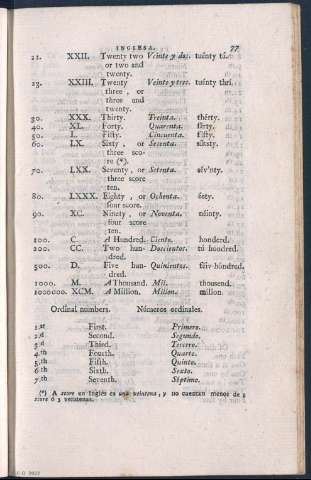 INGLESA. 77
22. XXII. Twenty two Veinte y dos. tuénty tú.
or two and
twenty.
23. XXIII. Twenty Veinte y tres. tuénty thrí.
three , or
three and
twenty.
30. XXX. Thirty. Treinta. thérty.
40. XL. Forty. Quarenta. fórty.
50. L. Fifty. Cincuenta. fífty.
60. LX. Sixty , or Sesenta. síksty.
three sco-
re (*).
70. LXX. Seventy , or Setenta. sév'nty.
three score
ten.
80. LXXX. Eighty , or Ochenta. éety.
four score.
90. XC. Ninety , or Noventa. náinty.
four score
ten.
100. C A Hundred. Ciento. honderd.
200. CC. Two hun- Doscientos. tú hónderd.
dred.
500. D. Five hun- Quinientos. fáiv-hónderd.
dred.
1000. M. A Thousand. Mil. thousend.
1000000. XCM. A Million. Millon. milion.
Ordinal numbers. Números ordinales.
1.st First. Primero.
2.d Second. Segundo.
3.d Third. Tercero.
4.th Fourth. Quarto.
5.th Fifth. Quinto.
6.th Sixth. Sexto.
7.th Seventh. Séptimo.
(*) A score en Inglés es una veintena, y no cuentan menos de 3
score ó 3 veintenas.